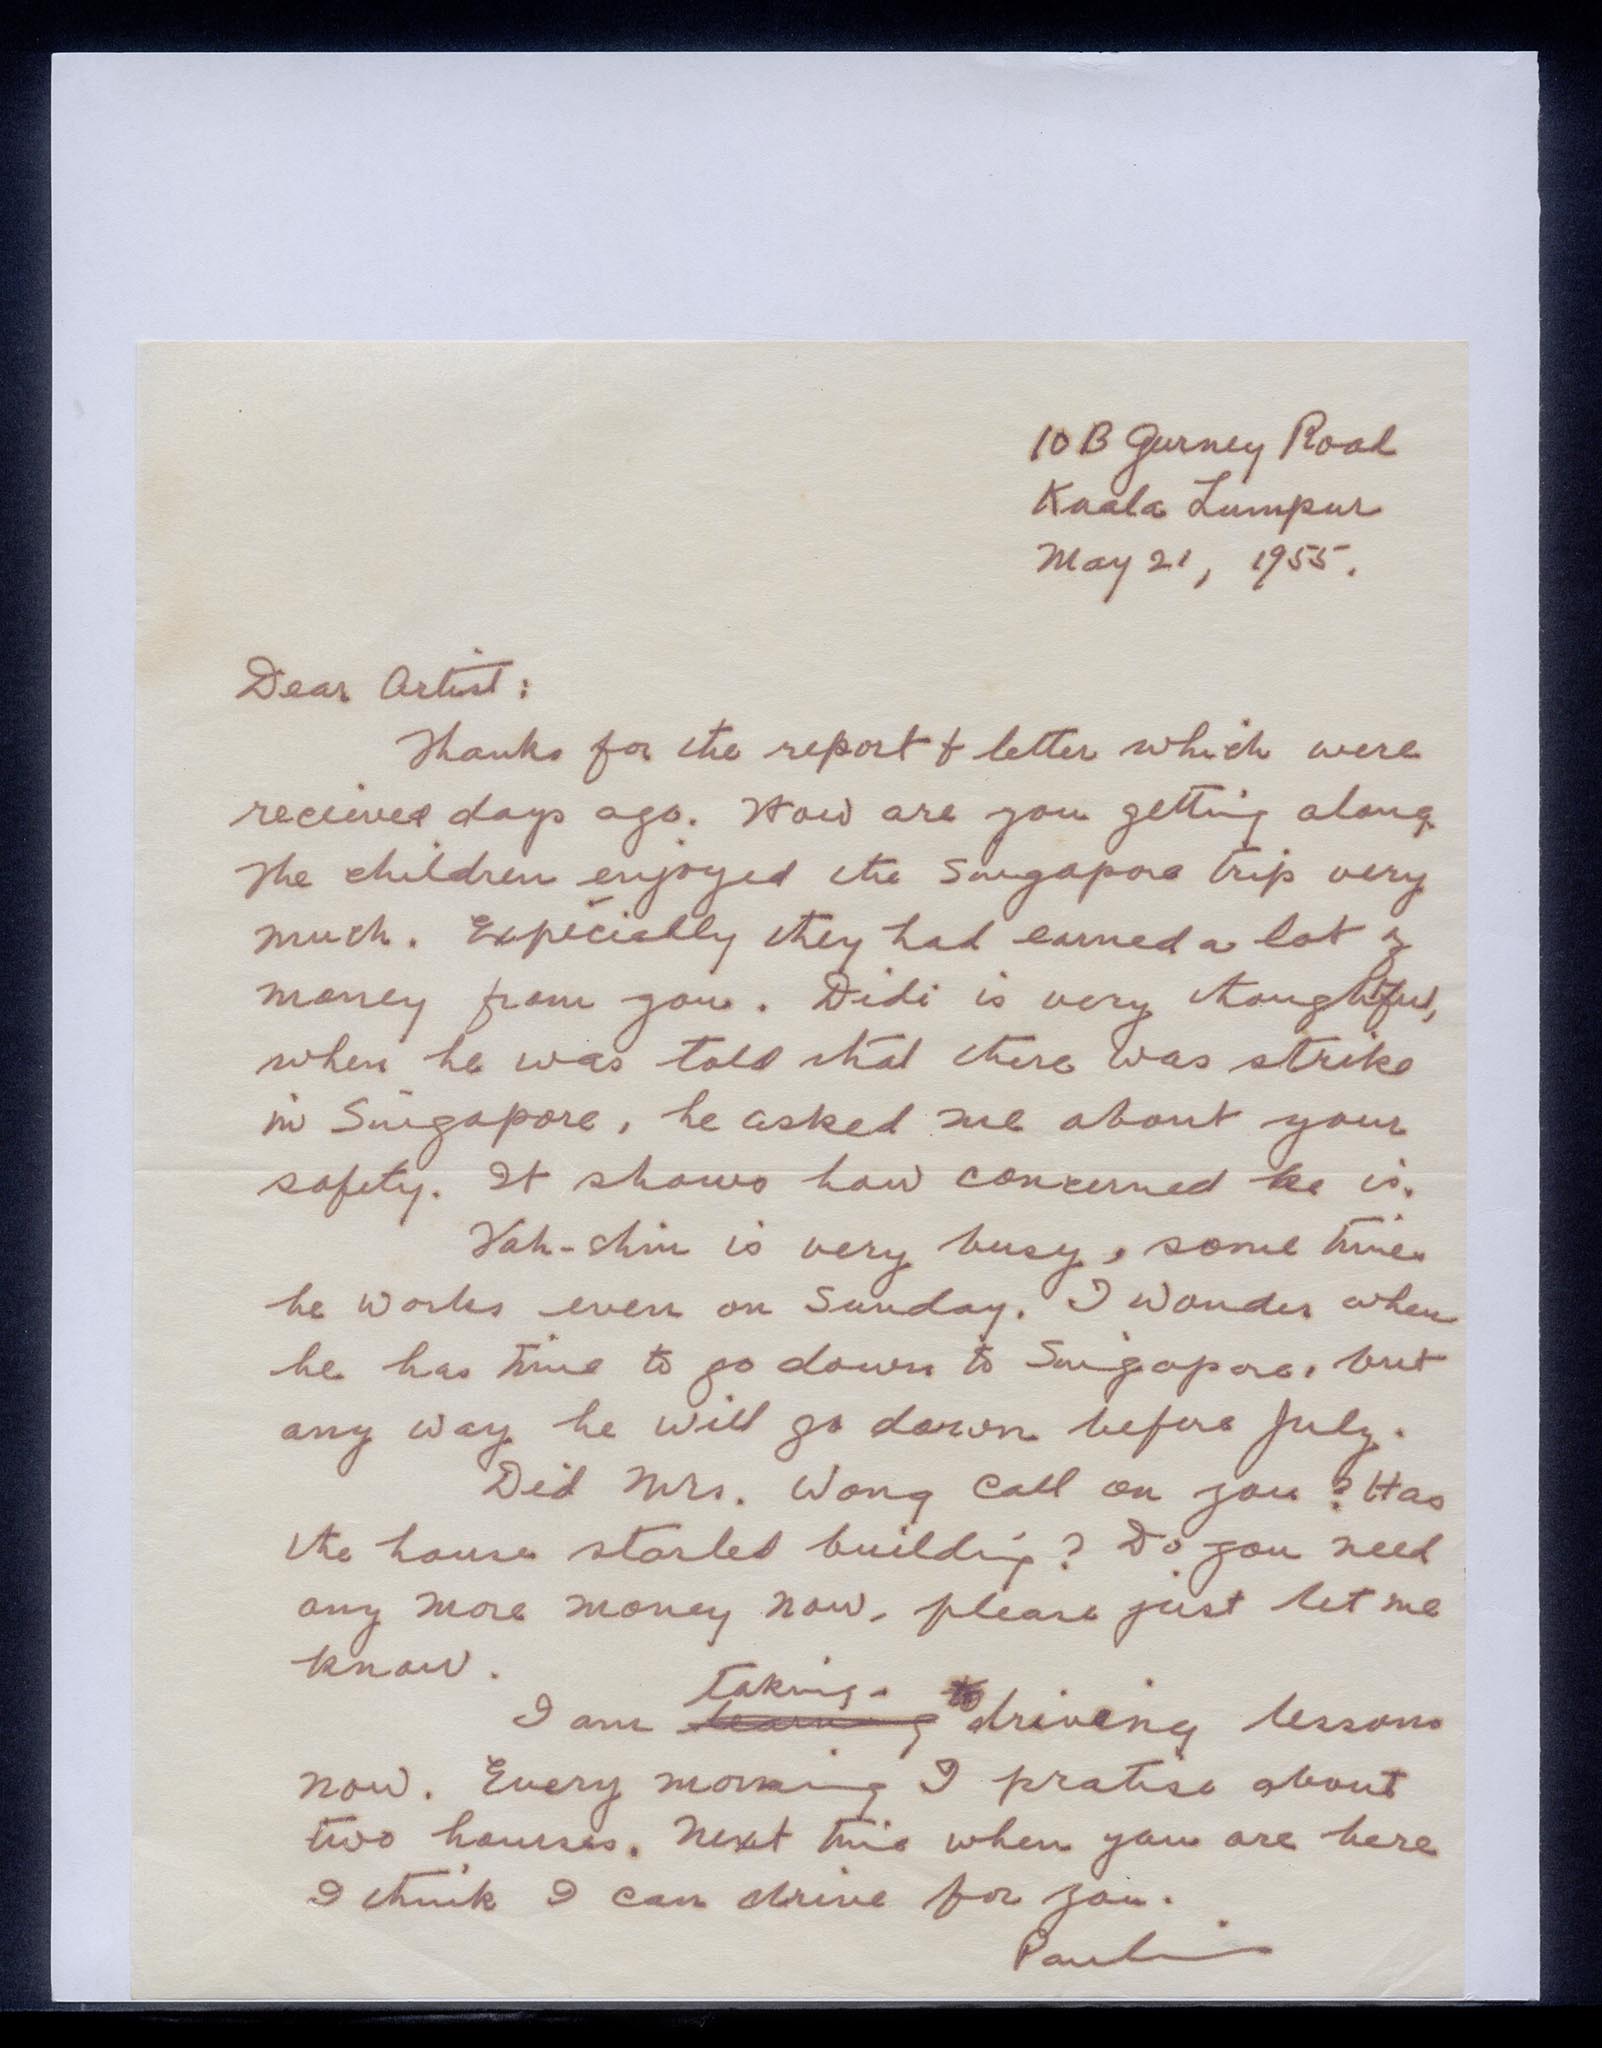 10 B Gurney Road
Kuala Lumpur
May 21, 1955.
Dear Artist:
Thanks for the report & letter which were
recieved days ago. How are you getting along.
The children enjoyed the Singapore trip very
much. Expecially they had earned a lot of
money from you. Didi is very thoughtful,
when he was told that there was strike
in Singapore, he asked me about your
safety. It shows how concerned he is.
Yah-chin is very busy, some times
he works even on Sunday. I wonder when
he has time to go down to Singapore, but
any way he will go down before July.
Did Mrs. Wong call on you? Has
the house started building? Do you need
any more money now, please just let me
know.
taking
I am learning driving lessons
now. Every morning I pratise about
two hourses. Next time when you are here
I think I can drive for you.
Paulin